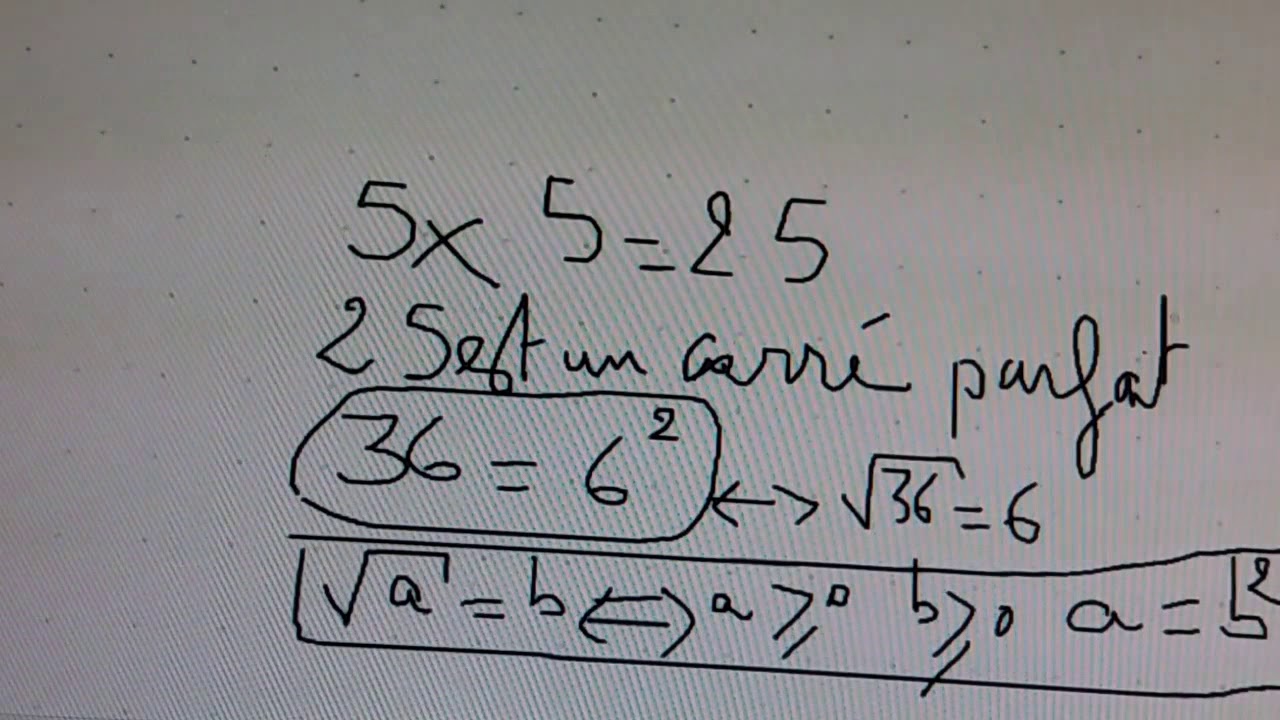 5 x 5 = 25
25 est un carré parfat
36 = 6² <-> √36 = 6
√a = b ⟺ a ⩾ 0 b ⩾ 0 a = b²